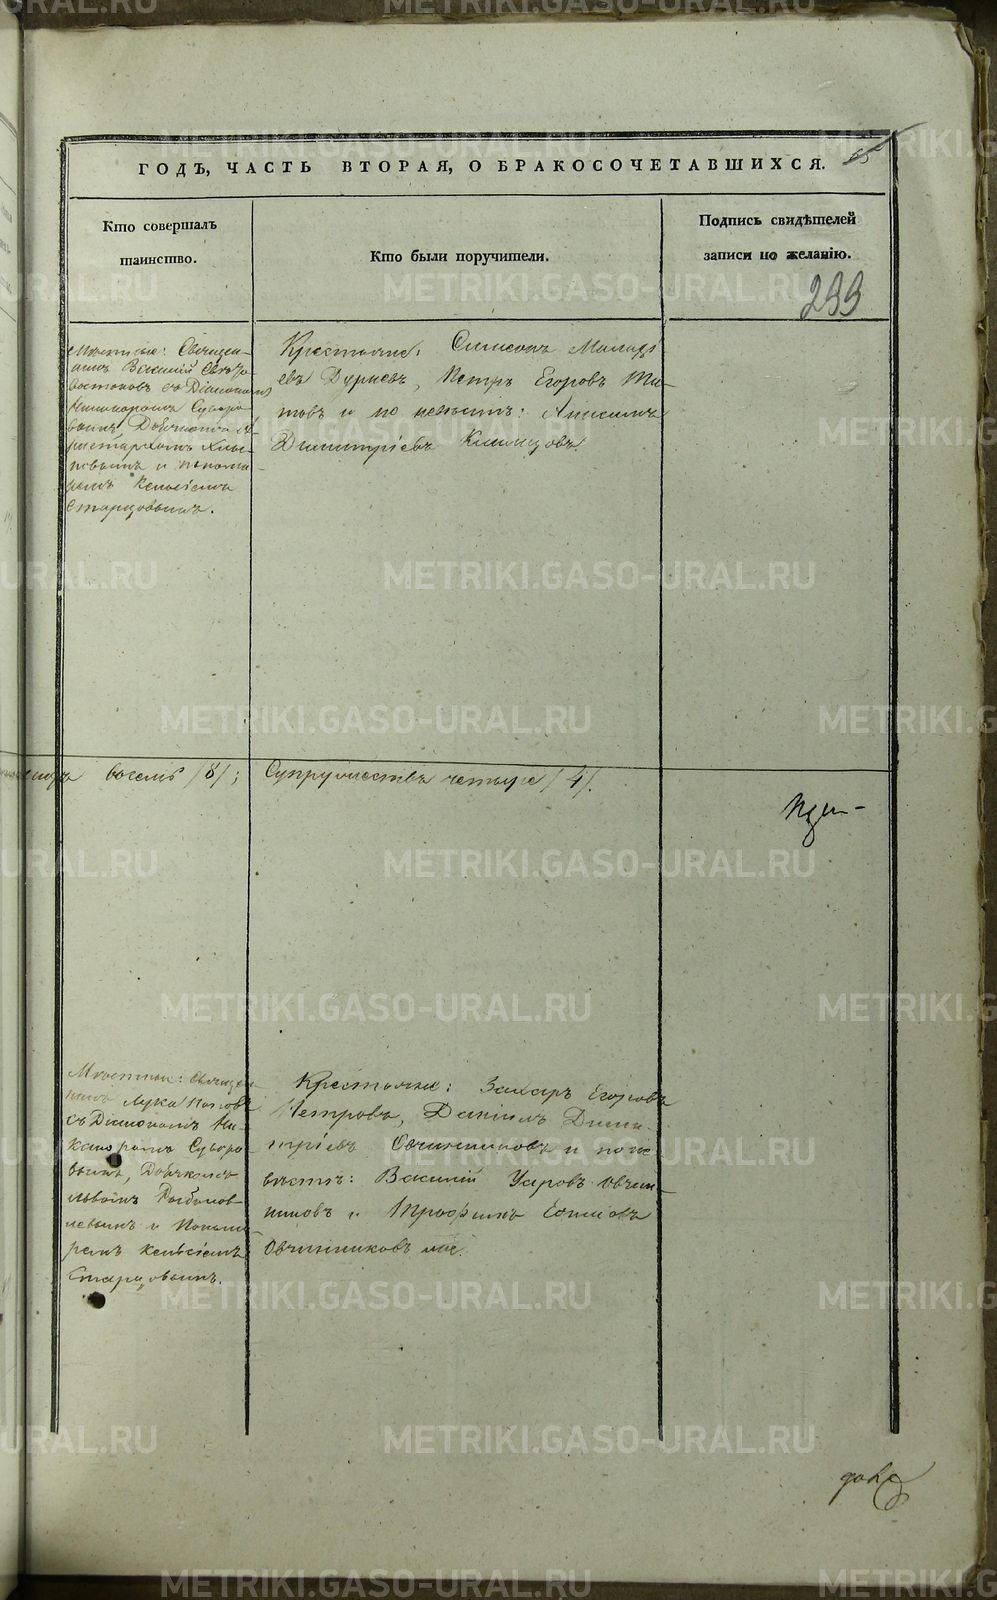 ГОДЪ, ЧАСТЬ ВТОРАЯ, О БРАКОСОЧЕТАВШИХСЯ.
Кто совершалъ
таинство.
Кто были поручители.
Подпись свидѣтелей
записи по желанію.
299
Мѣстные: Священ-
Василій
съ Діакономъ
Никаноромъ Суворо-
вымъ, Дьячкомъ А-
ристархомъ
и понома-
ремъ
Старцовымъ.
Крестьяне: Симеонъ
евъ Дурневъ, Петръ Егоровъ Ти-
товъ и по невѣстѣ:
Димитріевъ Климцовъ.
восемь /8/;
Супружествъ четыре /4/.
Мѣстные: Священ-
никъ Лука Поповъ
съ Діакономъ Ни-
каноромъ Суворо-
вымъ, Дьячкомъ
и Понома-
ремъ
Старцовымъ.
Крестьяне: Захаръ Егоровъ
Петровъ, Даніилъ Дими-
тріевъ Овчинниковъ и по не-
вѣстѣ: Василій Уаровъ Овчин-
никовъ и Трофимъ
Овчинниковъ же.
METRIKI.GASO-URAL.RU